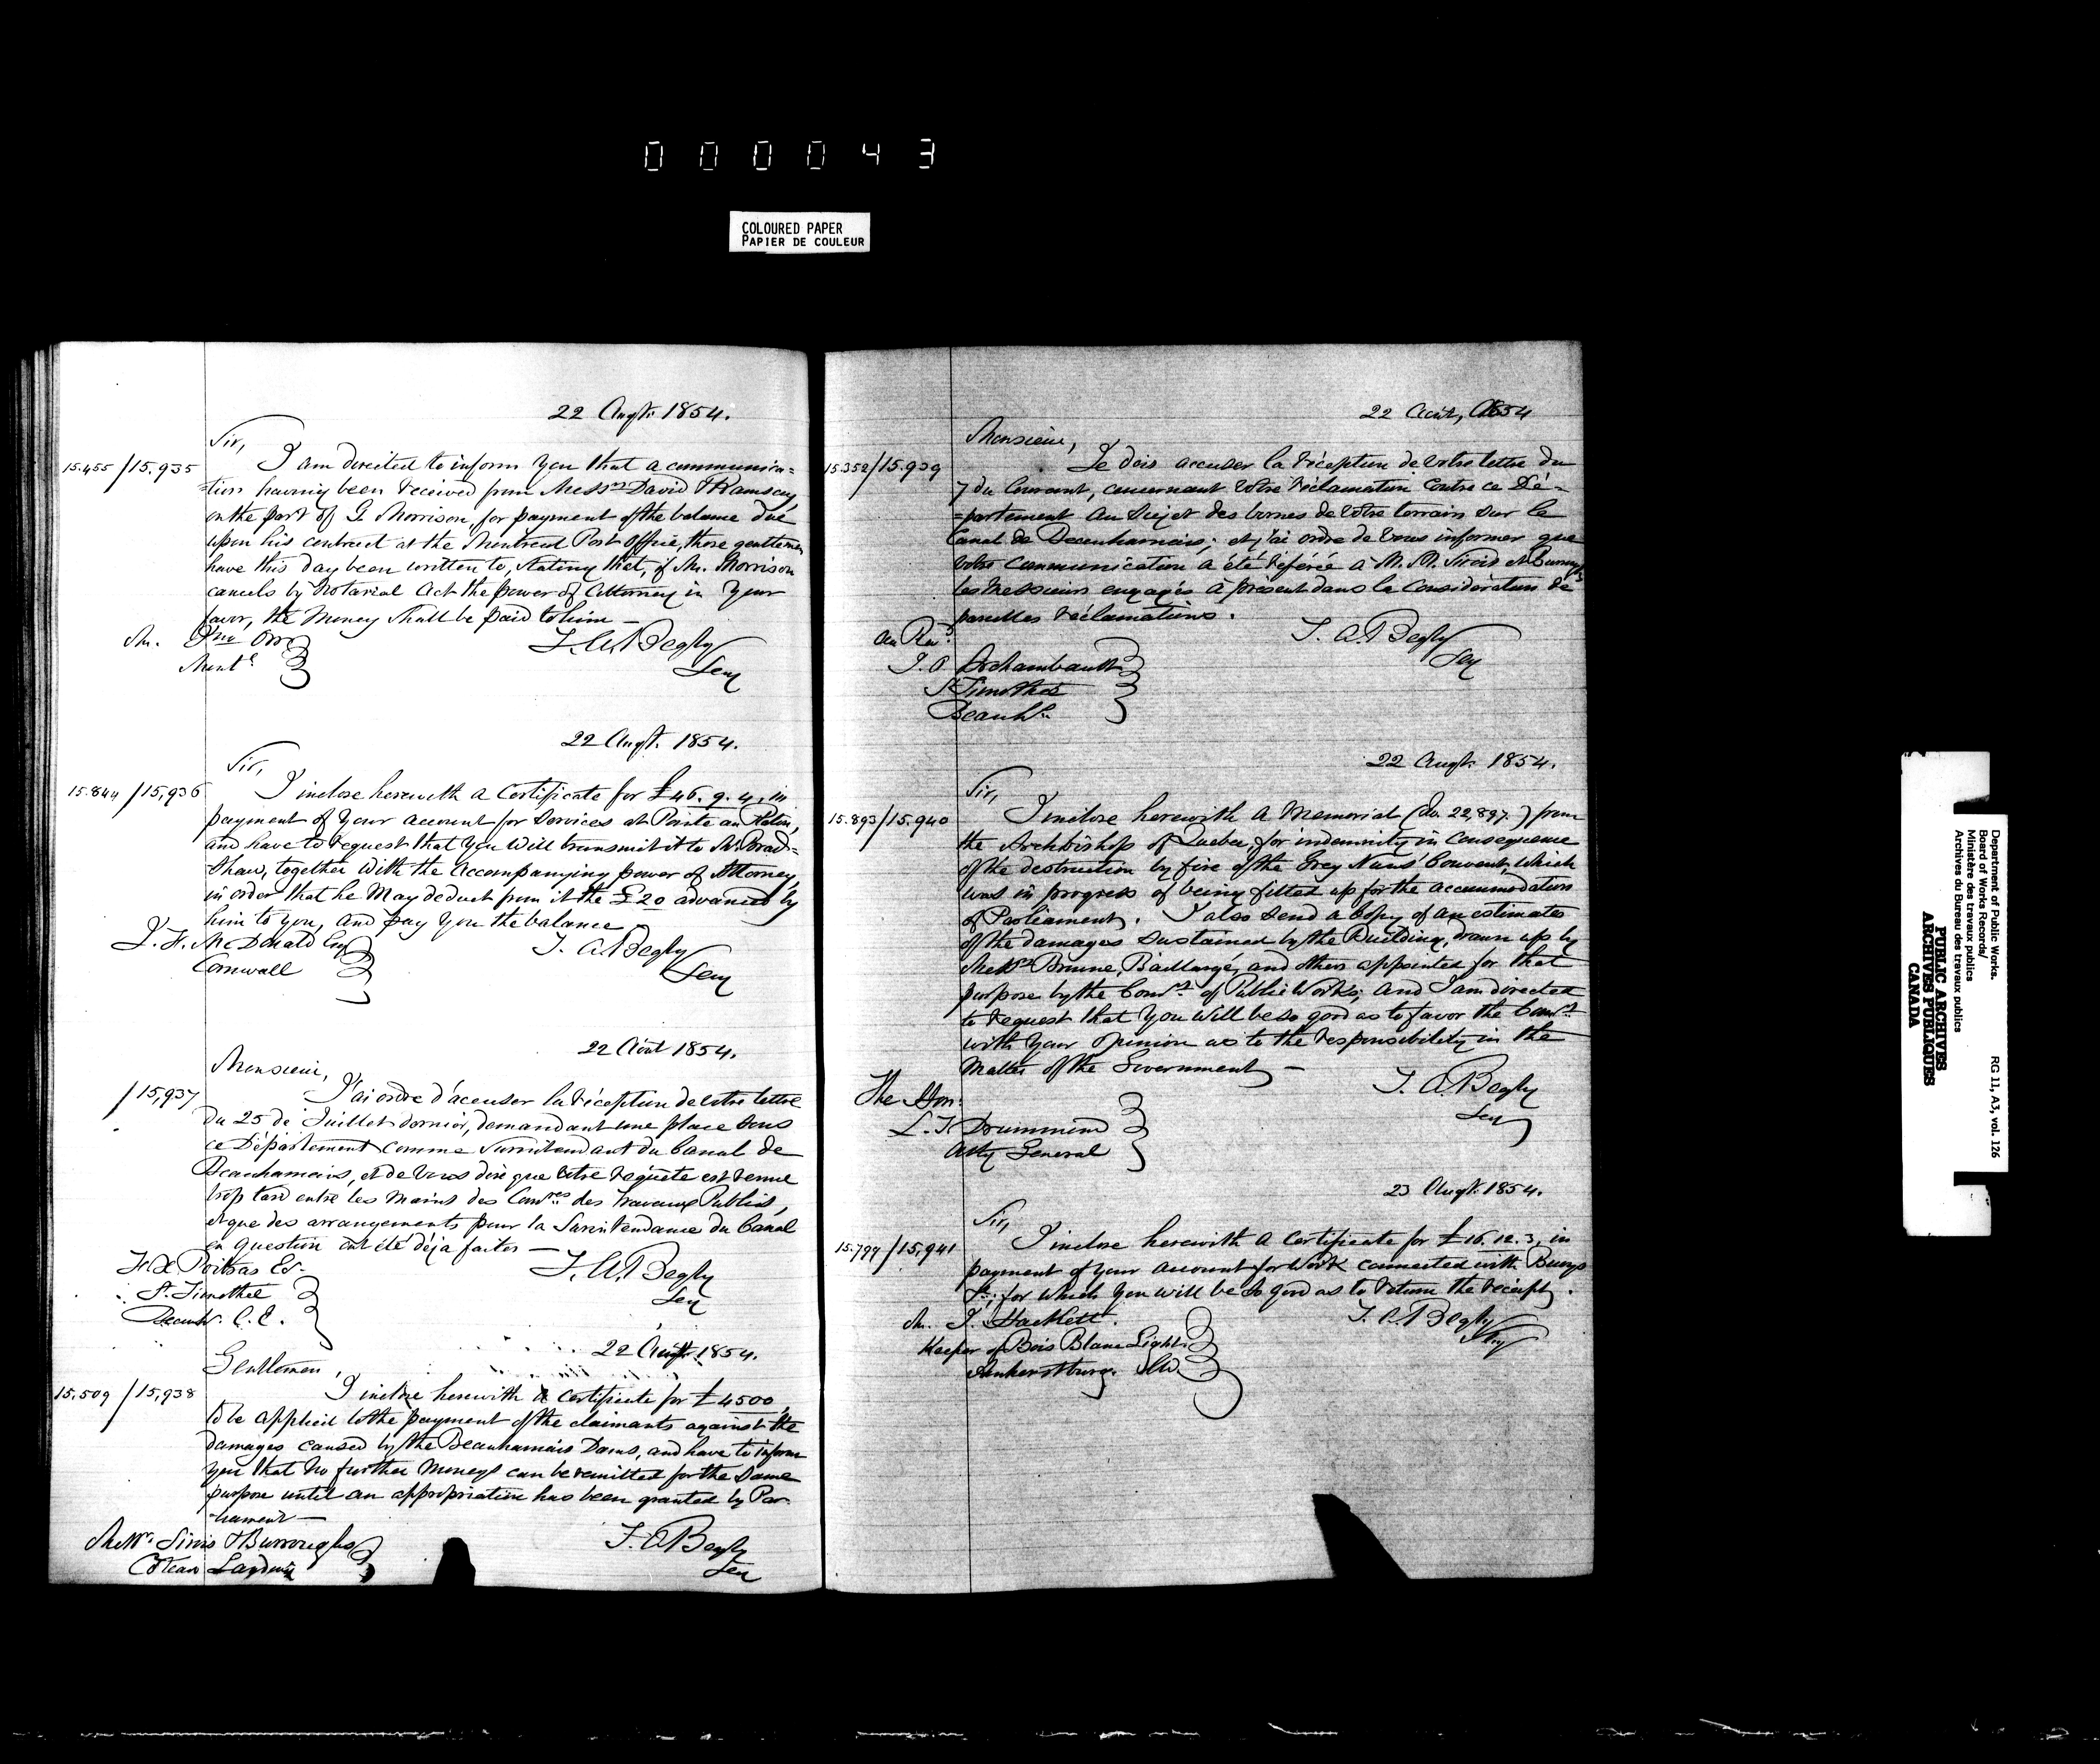 0 0 0 0 4 3
COLOURED PAPER
PAPIER DE COULEUR
22 Augt. 1854.
Sir,
15.455 / 15,935 I am directed to inform you that a communica=
=tion having been received from Messrs David & Ramsay,
on the part of G. Morrison, for payment of the balance due
upon his contract at the Montreal Post Office, those gentlemen
have this day been written to, stating that, if Mr. Morrison
cancels by Notarial Act the power of Attorney in your
favor, the Money shall be paid to him —
Mr. Jno Orr
Montl
T. A. Begly
Secy
22 Augt. 1854.
Sir,
15.844 / 15,936 I inclose herewith a Certificate for £46. 9. 4, in
payment of your account for services at Pointe au Pelin,
and have to request that you will transmit it to Mr. Brad=
=shaw, together with the accompanying power of Attorney,
in order that he May deduct from it the £20 advanced by
him to you, and pay you the balance
McDonald Esq
Cornwall
T. A. Begly
Secy
22 Août 1854.
Monsieur,
/ 15,937 J'ai ordre d'accuser la réception de votre lettre
du 25 de Juillet dernier, demandant une place sous
ce Département comme Surintendant du Canal de
Beauharnois, et de vous dire que votre requête est venue
trop tard entre les mains des Comres des Travaux Publics,
et que des arrangements pour la Surintendance du Canal
en question ont été déja faites —
F. X. Poitras Er
St. Timothée
Beauhs. C. E.
T. A. Begly
Secy
22 Augt. 1854.
Gentlemen,
15,509 / 15,938 I inclose herewith a certificate for £4500,
to be applied to the payment of the claimants against the
damages caused by the Beauharnois Dams, and have to inform
you that no further moneys can be remitted for the same
purpose until an appropriation has been granted by Par-
-liament —
Messrs. Sirois & Burroughs
Coteau Landing
T. A. Begly
Secy
22 Août, 1854
Monsieur,
15.352 / 15.939 Je dois accuser la réception de votre lettre du
7 du Courant, concernant votre réclamation contre ce Dé=
=partement au sujet des bornes de votre terrain sur le
Canal de Beauharnois; et j'ai ordre de vous informer que
votre communication a été référée à M. M. Sirois et Burroughs
les Messieurs engagés à présent dans la Considération de
pareilles réclamations.
Au Rev.
Archambault
St Timothée
Beauhs.
T. A. Begly
Secy
22 Augt. 1854.
Sir,
15.893 / 15.940 I inclose herewith a Memorial (No. 22,897.) from
the Archbishop of Quebec, for indemnity in consequence
of the destruction by fire of the Grey Nuns' Convent, which
was in progress of being fitted up for the accommodation
of Parliament. I also send a Copy of an estimates
of the damages sustained by the Building, drawn up by
Messrs Browne, Baillargé, and others appointed for that
purpose by the Comrs. of Public Works; and I am directed
to request that you will be so good as to favor the Comrs.
with your opinion as to the responsibility in the
Matter of the Government —
The Hon:
L. T. Drummond
Atty General
T. A. Begly
Secy
23 Augt. 1854.
Sir,
15.799 / 15,941 I inclose herewith a Certificate for £16. 12. 3, in
payment of your account for Work connected with Buoys
&c; for which you will be so good as to return the receipt.
Mr. J. Hackett.
Keeper of Bois Blanc Light.
Amherstburg. C.W.
T. A. Begly
Secy
Department of Public Works. RG 11, A3, vol. 126
Board of Works Records/
Ministère des travaux publics
Archives du Bureau des travaux publics
PUBLIC ARCHIVES
ARCHIVES PUBLIQUES
CANADA